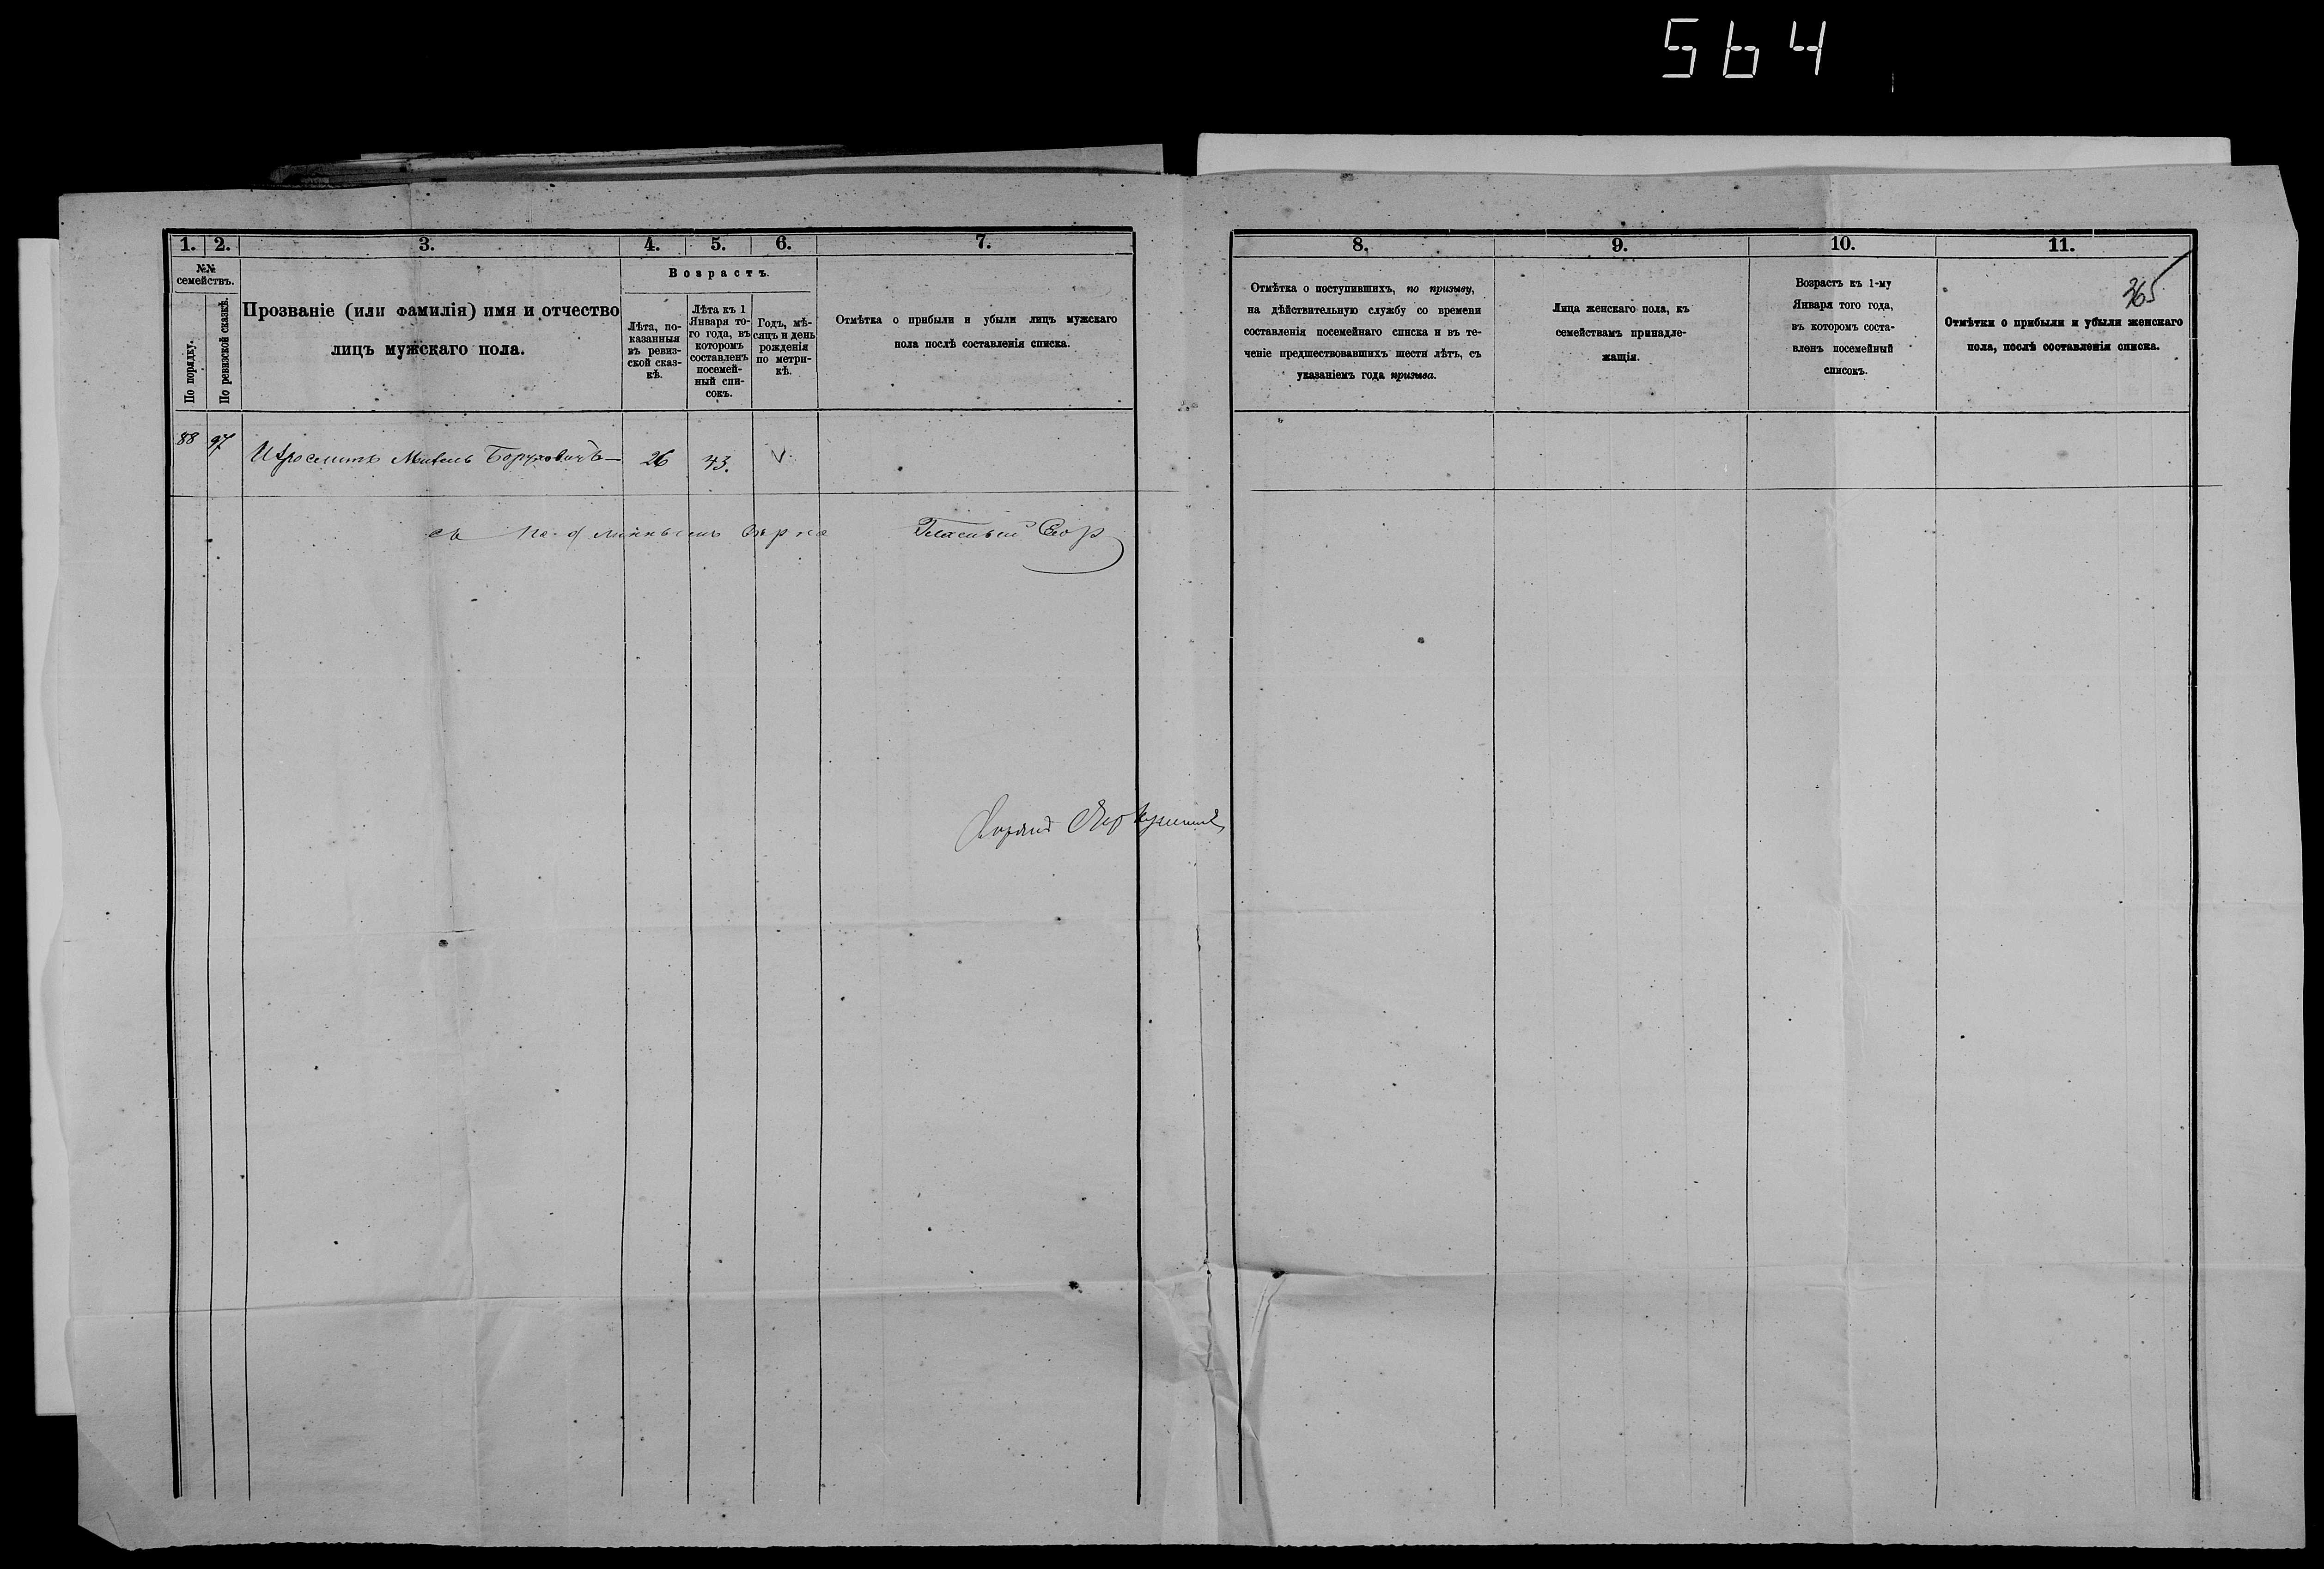 564
1.
2.
3.
4.
5.
6.
7.
№№
семействъ.
По порядку.
По ревизской сказкѣ.
Прозваніе (или фамилія) имя и отчество
лицъ мужскаго пола.
Возрастъ.
Лѣта, по-
казанныя
въ ревиз-
ской сказ-
кѣ.
Лѣта къ 1
Января то-
го года, въ
которомъ
составленъ
посемей-
ный спи-
сокъ.
Годъ, мѣ-
сяцъ и день
рожденія
по метри-
кѣ.
Отмѣтка о прибыли и убыли лицъ мужскаго
пола послѣ составленія списка.
88 97 Боруховичъ— 26 43. V
съ вѣрно Гласный
8.
9.
10.
11.
365
Отмѣтка о поступившихъ, по призыву,
на дѣйствительную службу со времени
составленія посемейнаго списка и въ те-
ченіе предшествовавшихъ шести лѣтъ, съ
указаніемъ года призыва.
Лица женскаго пола, къ
семействамъ принадле-
жащія.
Возрастъ къ 1-му
Января того года,
въ которомъ соста-
вленъ посемейный
списокъ.
Отмѣтки о прибыли и убыли женскаго
пола, послѣ составленія списка.